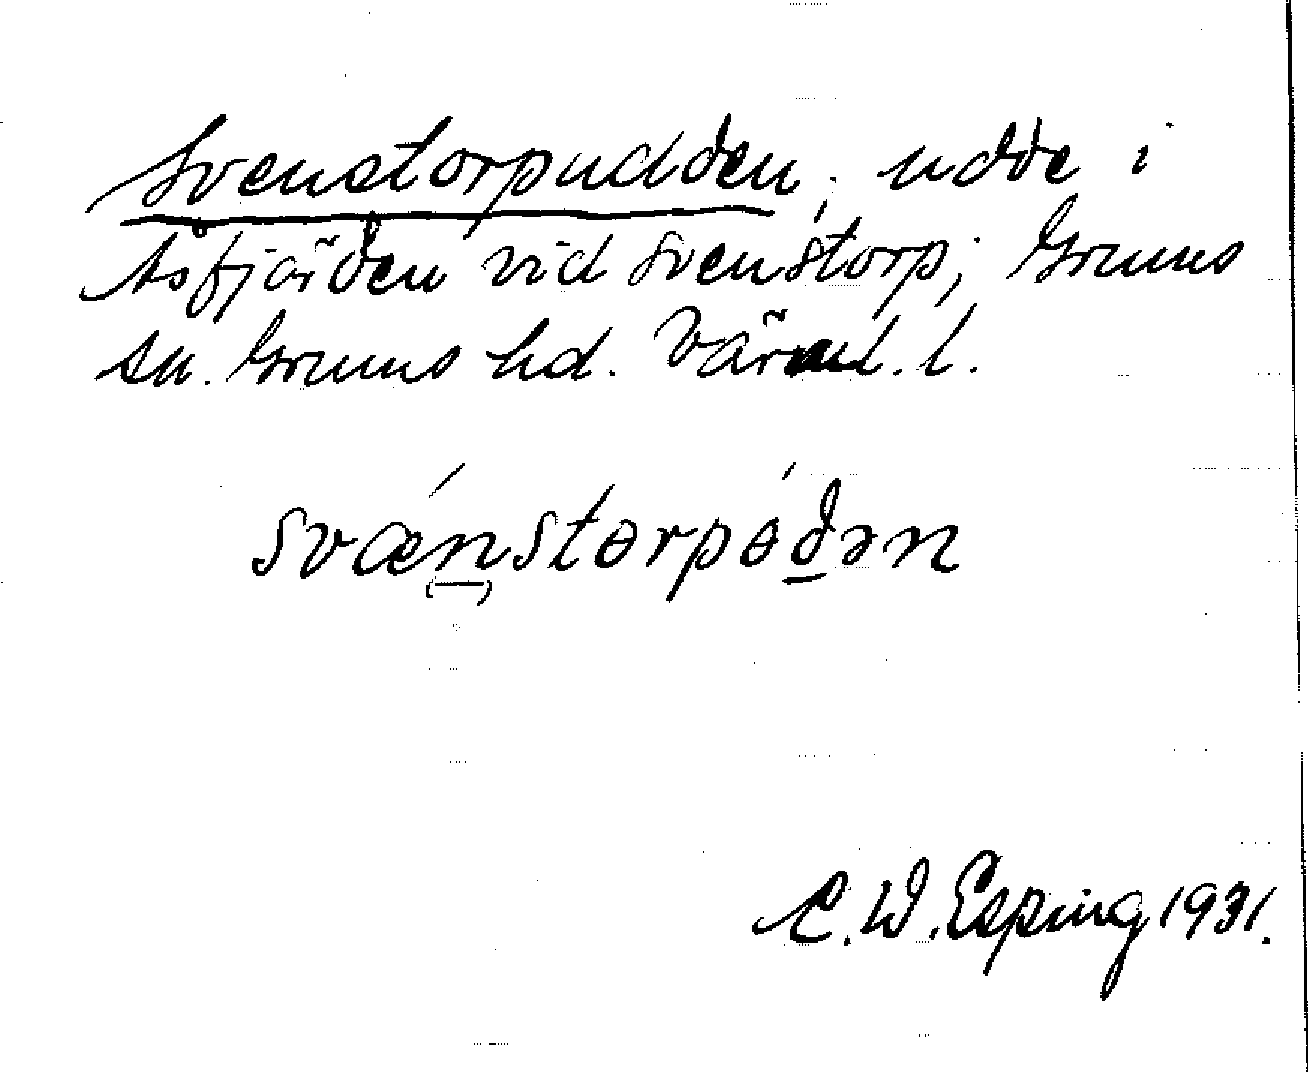 Svenstorpudden, udde i
Åsfjärden vid Svenstorp; Grums
sn. Grums hd. Värml. l.
svæ´nstɵrpɵ´dən
C. W. Esping 1931.